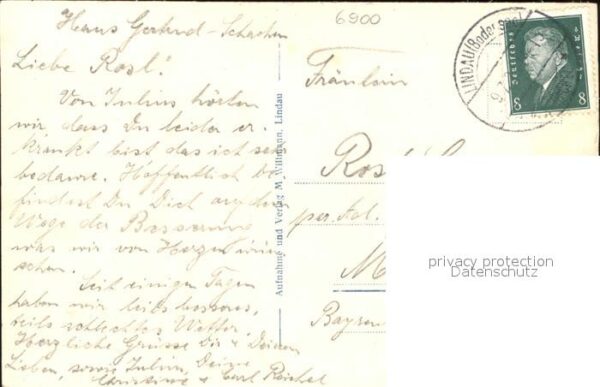 6900
Haus Gertrud - Schachen
Liebe Rosl!
Von Julius hörten
wir, dass Du leider er-
krankt bist das ich sehr
bedaure. Hoffentlich be-
findest Du Dich auf dem
Wege der Besserung
was wir von Herzen wün-
schen.
Seit einigen Tagen
haben wir teils besseres,
teils schlechtes Wetter.
Herzliche Grüsse Dir u. Deinen
Lieben, sowie Julius, Deine
Christine u. Carl Reichel
Aufnahme und Verlag M. Willmann, Lindau
Fräulein
Ros
per Ad.
M
Bayer
LINDAU (Bodensee)
Deutsches Reich
8 8
privacy protection
Datenschutz